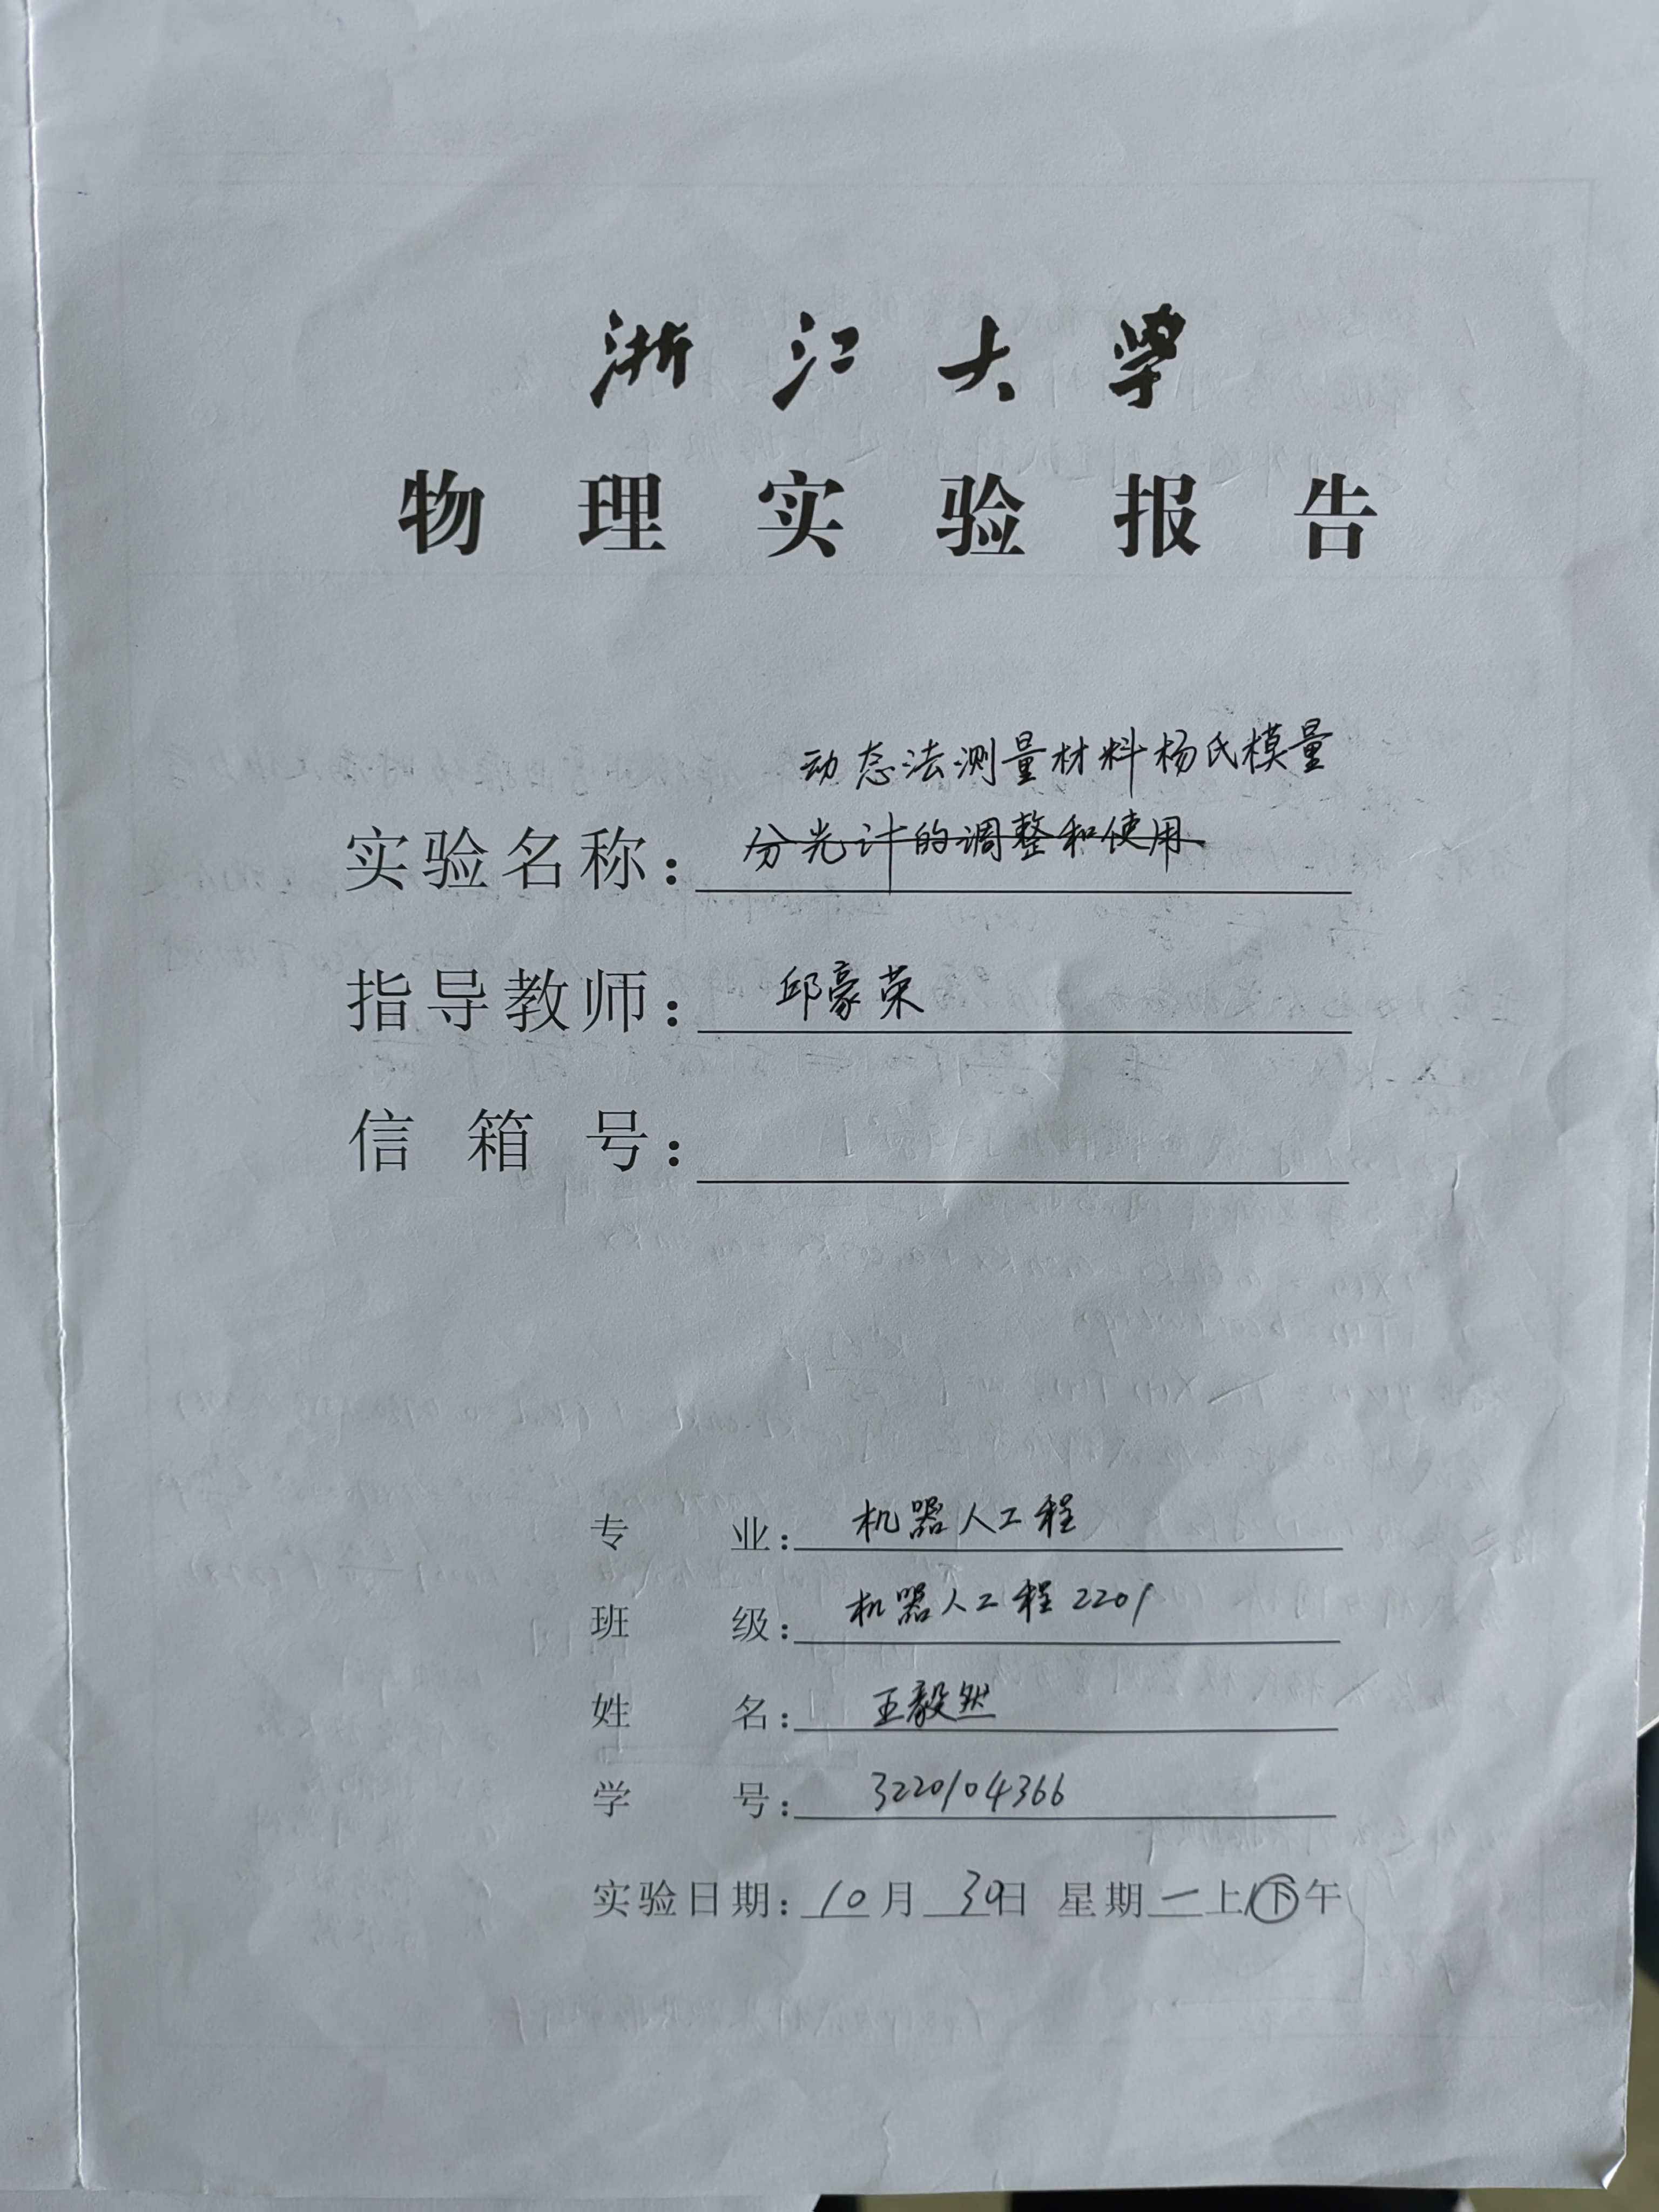 浙江大学
物理实验报告
动态法测量材料杨氏模量
实验名称：分光计的调整和使用
指导教师：邱豪荣
信箱号：
专业：机器人工程
班级：机器人工程2201
姓名：王毅然
学号：3220104366
实验日期：10月30日 星期一上/下午